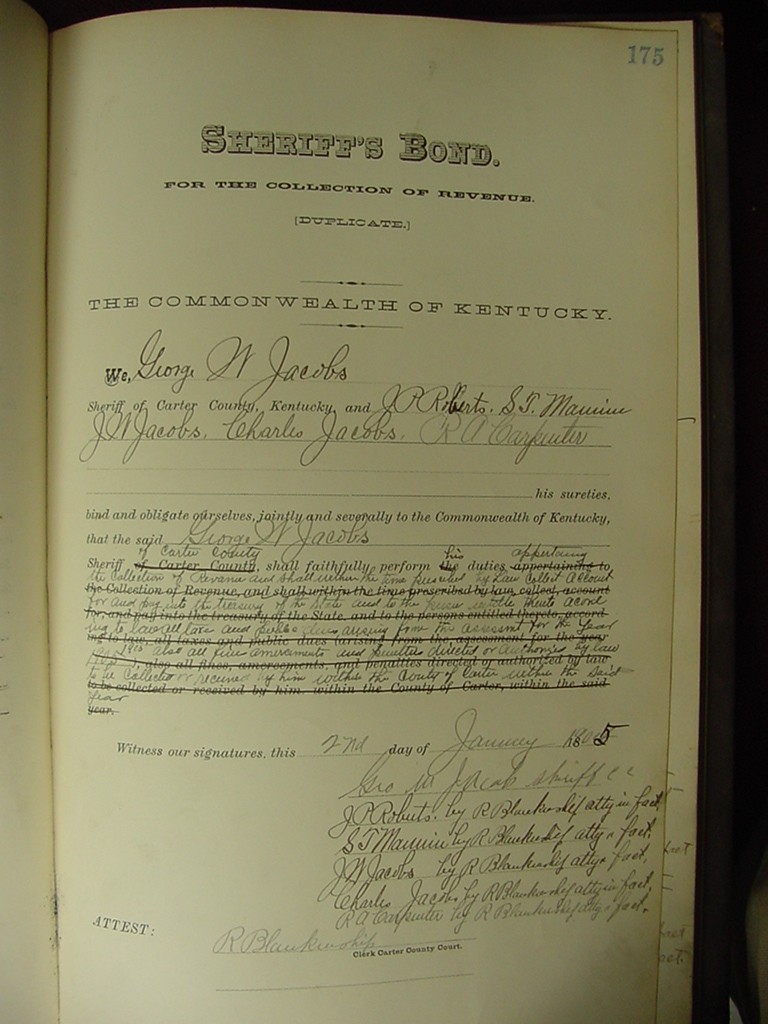 175
SHERIFF'S BOND.
FOR THE COLLECTION OF REVENUE.
[DUPLICATE.]
THE COMMONWEALTH OF KENTUCKY.
We, George W Jacobs
Sheriff of Carter County, Kentucky, and J. P. Roberts. S. T. Mannin
J W Jacobs. Charles Jacobs. R A Carpenter
his sureties,
bind and obligate ourselves, jointly and severally to the Commonwealth of Kentucky,
that the said George W Jacobs
of Carter County his appertaing
Sheriff of Carter County, shall faithfully perform the duties appertaining to,
the Collection of Revanu and shall within the time prescribed by Law Collect Account
the Collection of Revenue, and shall within the time prescribed by law, collect, account
for and pay into the treasury of the State and to the
for, and pay into the treasury of the State, and to the persons entitled thereto, accord-
ing to law all and public dues arising from the assessment for the year
ing to law, all taxes and public dues (arising from the, assessment for the year
also all fines amercements and penalties directed or Authorized by law
also all fines, amercements, and penalties directed or authorized by law
to be Collected or received by him within the County of Carter within the said
to be collected or received by him, within the County of Carter, within the said
year
year.
Witness our signatures, this 2nd day of January 5
Geo W Jacob shriff C C
J. P. Roberts. by R Blankenship atty in fact.
S T Mannin by R Blankenship atty n fact.
J W Jacobs by R Blankenship atty n fact.
Charles Jacobs by R Blankenship atty in fact.
R A Carpenter by R Blankenship atty n fact.
ATTEST:
R Blankenship
Clerk Carter County Court.